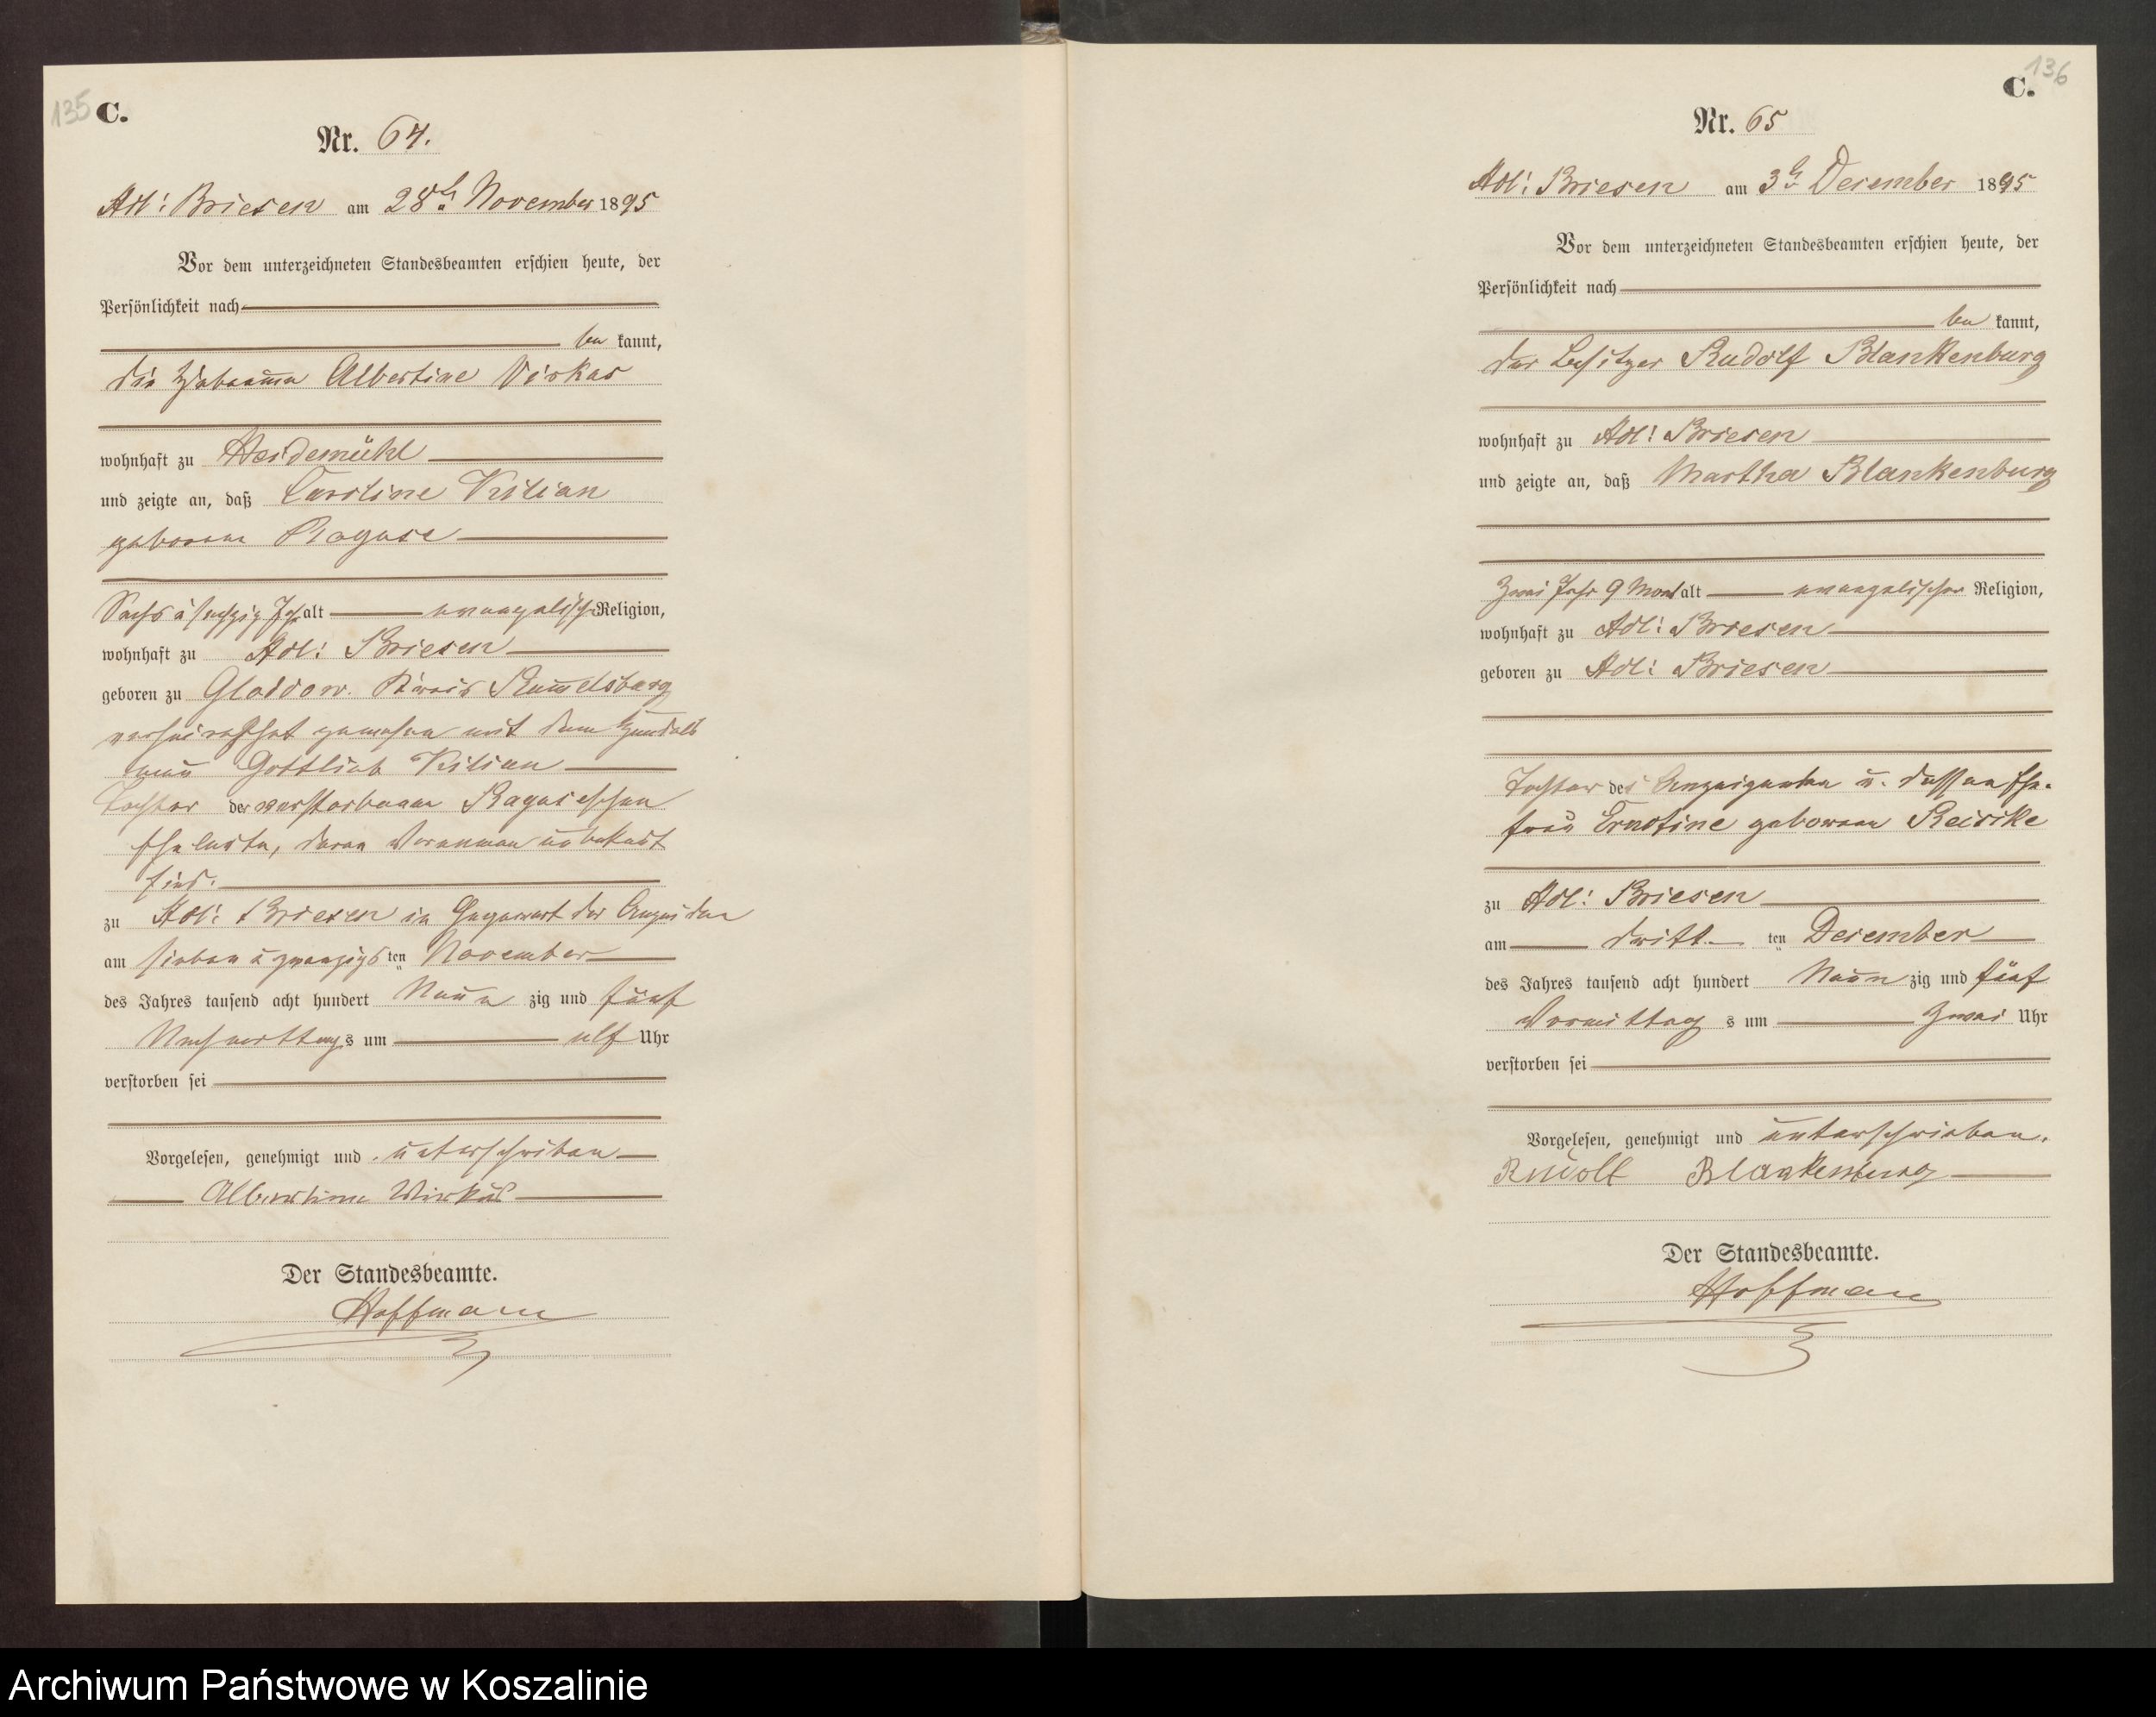 135 C.
Nr. 64.
Adl: Briesen am 28ten November 1895
Vor dem unterzeichneten Standesbeamten erschien heute, der
Persönlichkeit nach
be kannt,
die Hebamme Albertine Virkus
wohnhaft zu Heidemühl
und zeigte an, daß Caroline Kilian
geborene Raguse
Sechs u sechzig Jahr alt evangelischer Religion,
wohnhaft zu Adl: Briesen
geboren zu Gloddow. Kreis Rummelsburg
verheirathet gewesen mit dem
Gottlieb Kilian
Tochter der verstorbenen Raguseschen
Eheleute, deren Vornamen unbekant
sind.
zu Adl: Briesen in Gegenwart der
am sieben u zwanzigsten November
des Jahres tausend acht hundert Neun zig und fünf
Nachmittags um elf Uhr
verstorben sei
Vorgelesen, genehmigt und unterschrieben
Albertine Wirkus
Der Standesbeamte.
Hoffmann
136
C.
Nr. 65
Adl: Briesen am 3ten Desember 1895
Vor dem unterzeichneten Standesbeamten erschien heute, der
Persönlichkeit nach
be kannt,
der Besitzer Rudolf Blankenburg
wohnhaft zu Adl: Briesen
und zeigte an, daß Martha Blankenburg
Zwei Jahr 9 Monat alt evangelischer Religion,
wohnhaft zu Adl: Briesen
geboren zu Adl: Briesen
Tochter des Anzeigenden u. dessen Ehe-
frau Ernstine geborene
zu Adl: Briesen
am dritt ten Desember
des Jahres tausend acht hundert Neun zig und fünf
Vormittag s um zwei Uhr
verstorben sei
Vorgelesen, genehmigt und unterschrieben.
Rudolf Blankenburg
Der Standesbeamte.
Hoffmann
Archiwum Państwowe w Koszalinie